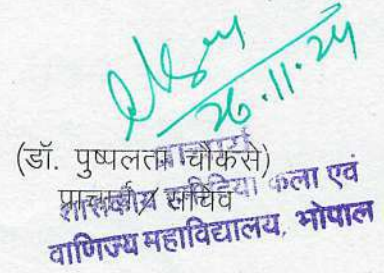 26.11.24
(डॉ. पुष्पलता चौकसे)
प्राचार्य
प्राचार्य/ सचिव
शासकीय कला एवं
वाणिज्य महाविद्यालय, भोपाल